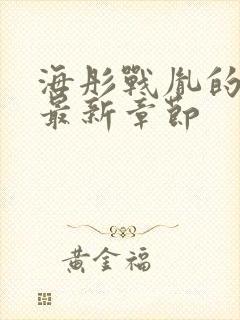 海彤戰胤的
最新章節
黃金福